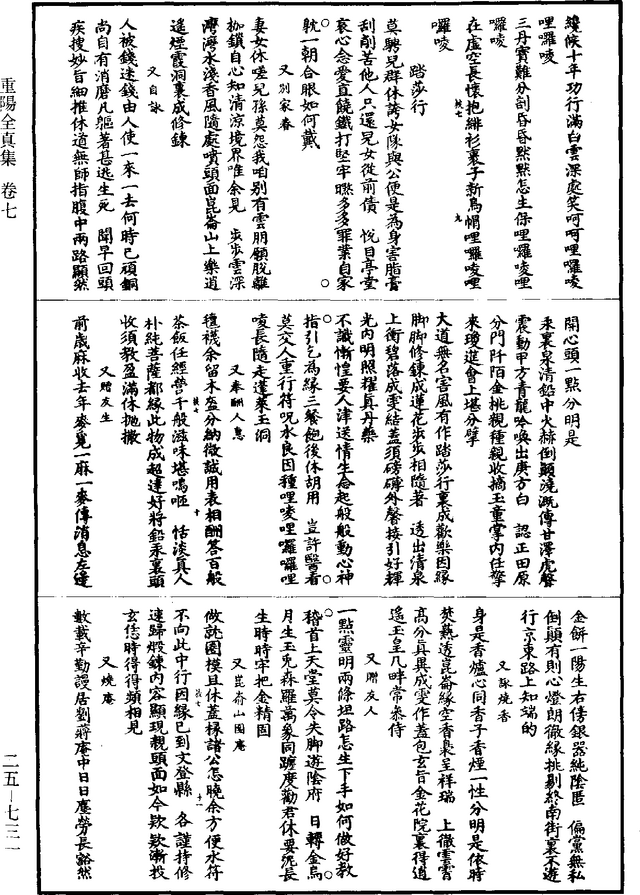 纔候十年功行滿白雲深處笑呵呵哩囉唛
哩囉唛
三丹實難分剖昏昏默默怎生保哩囉唛哩
囉唛
在虛空長懷抱緋衫裹子新烏帽哩囉唛哩
囉唛
踏莎行
莫騁兒群休誇女隊與公便是為身害脂膏
刮削苦他人只還兒女從前債 悅目亭堂
衷心念愛直饒鐵打堅牢曖多多罪業自家
躭一朝合眼如何戴
又別家眷
妻女休嗟兒孫莫怨我咱別有雲朋願脫離
枷鎖自心知清涼境界唯余見 步步雲深
灣灣水淺香風隨處噴頭面崑崙山上樂逍
遙煙霞洞裏成修鍊
又自詠
人被錢迷錢由人使一來一去何時已頑銅
尚自有消磨凡軀著甚逃生死 聞早回頭
疾搜妙旨細推休道無師指腹中兩路顯然
開心頭一點分明是
汞裏泉清鉛中火赫倒顛澆溉傳甘澤虎聲
震動甲方青龍吟喚出庚方白 認正田原
分門阡陌金挑親種親收摘玉童掌內任擎
來瓊進會上堪分擘
大道無名害風有作踏莎行裏成歡樂因緣
脚脚修鍊成蓮花步步相隨著 透出清泉
上衝碧落成雯結蓋須磅礴外馨接引好輝
光內明照耀真丹藥
不識慚惶要人津送情生念起般般動心神
指引乞為緣三餐飽後休胡用 豈許醫看
莫交人重行符呪水良因種哩唛哩囉囉哩
唛長隨走蓬萊玉洞
又奉酬人惠
襪余留木盔分納微誠用表相酬答百般
茶飯任經營千般滋味堪鳴咂 恬淡真人
朴純菩薩都緣此物成超達好將鉛汞裏頭
收須教盈滿休拋撒
又贈友生
前歲麻收去年麥覓一麻一麥傳消息左邊
金餅一陽生右傍銀器純陰匿 偏黨無私
倒顛有則心燈朗徹緣挑剔終南街裏不遊
行京東路上知端的
又詠燒香
身是香爐心同香子香煙一性分明是依時
焚爇透崑崙緣空香裊呈祥瑞 上徹雲霄
高分真異成雯作蓋包玄旨金花院裏得逍
遙玉皇几畔常參侍
又贈友人
一點靈明兩條坦路怎生下手如何做好教
稽首上天堂莫令失脚遊陰府 日轉金烏
月生玉兔森羅萬象同躔度勸君休要長
生時時牢把金精固
又崑崙山圓庵
做就團模且休蓋椽諸公怎曉余方便水符
不向此中行因緣已到文登縣 各謹持修
速歸煅鍊內容顯現親頭面如今欵欵漸投
玄恁時得得頻相見
又燒庵
數載辛勤謾居劉蔣庵中日日塵勞長豁然
重陽全真集 卷七
二五—七三一